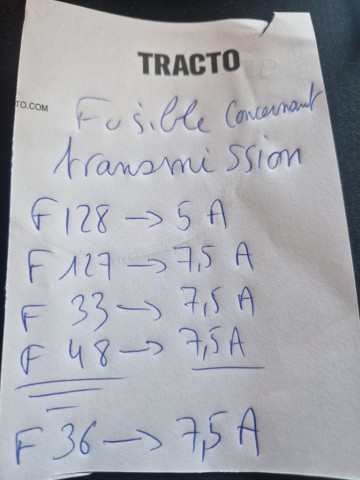 TRACTO
TO.COM
Fusible Concernant
transmission
F128 → 5 A
F 127 → 7,5 A
F 33 → 7,5 A
F 48 → 7,5 A
F 36 → 7,5 A